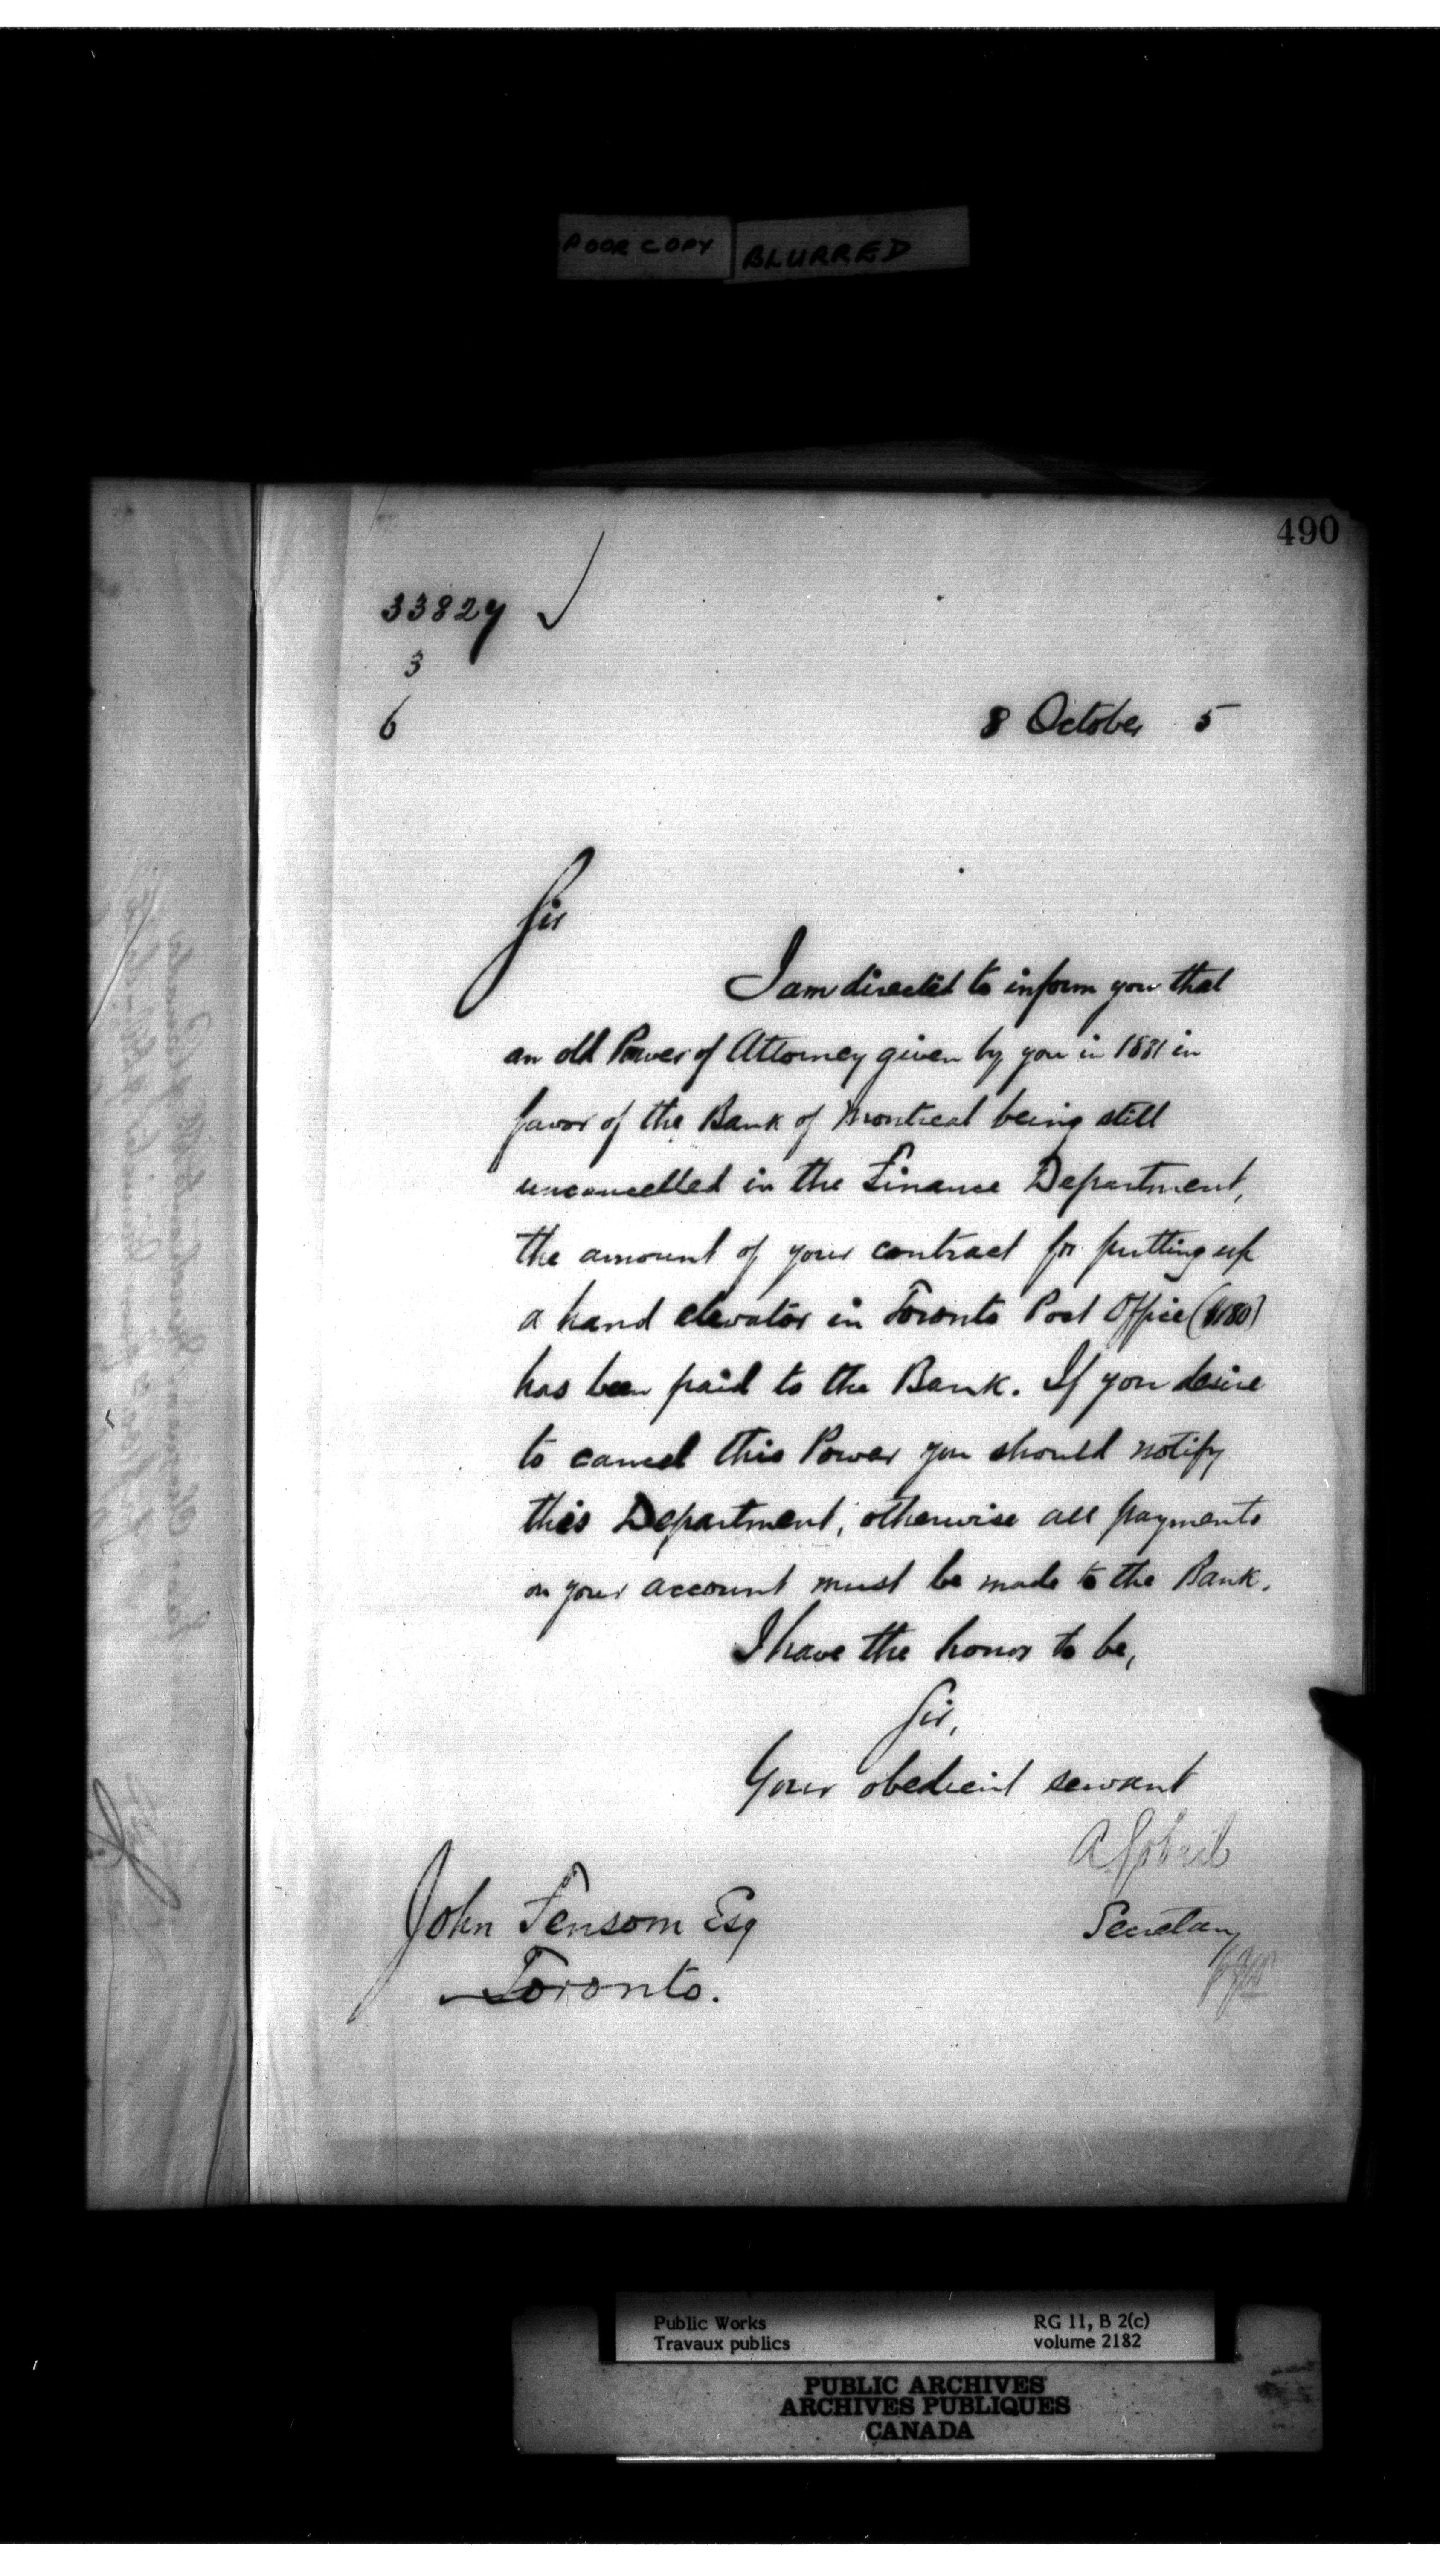 POOR COPY BLURRED
490
33827
3
6
8 October 5
Sir
I am directed to inform you that
an old Power of Attorney given by you in 1881 in
favor of the Bank of Montreal being still
uncancelled in the Finance Department,
the amount of your contract for putting up
a hand elevator in Toronto Post Office ($180)
has been paid to the Bank. If you desire
to cancel this Power you should notify
this Department, otherwise all payments
on your account must be made to the Bank.
I have the honor to be,
Sir,
Your obedient servant
A Gobeil
Secretary
John Fensom Esq
Toronto.
Public Works
Travaux publics
RG 11, B 2(c)
volume 2182
PUBLIC ARCHIVES
ARCHIVES PUBLIQUES
CANADA